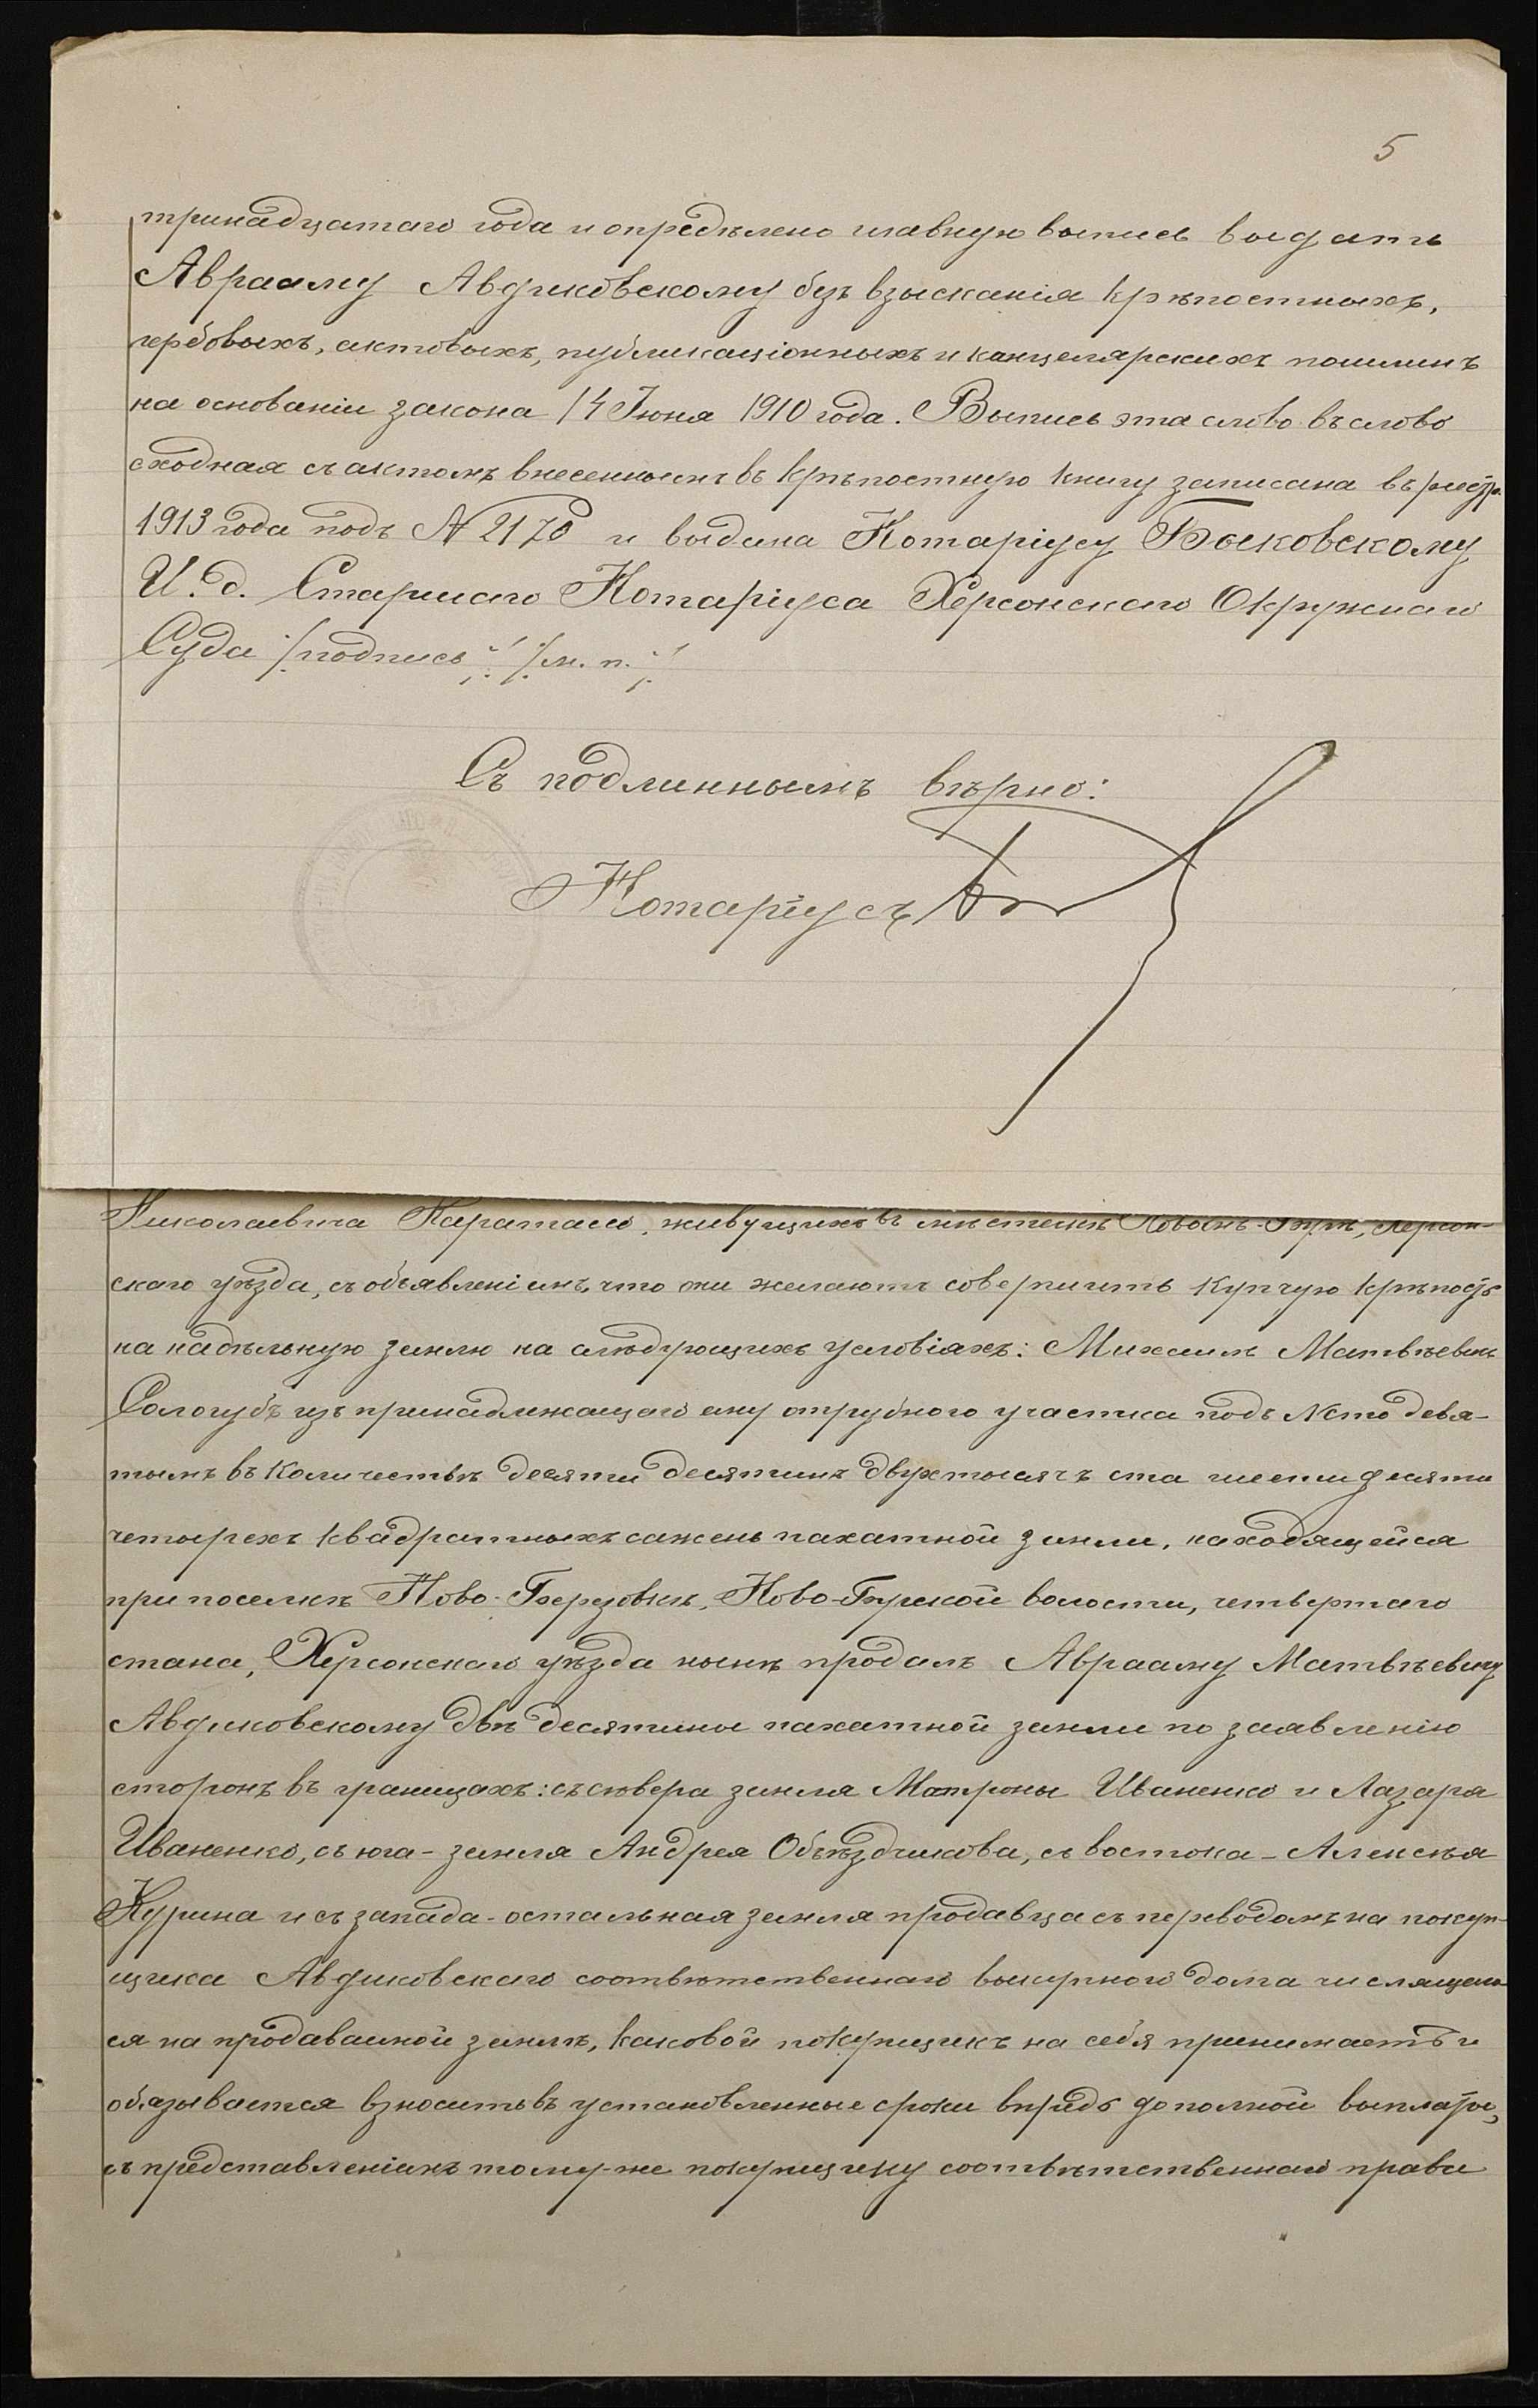 5
тринадцатаго года и опредѣлено главную выпись выдать
Аврааму Авдиковскому безъ взысканія крѣпостныхъ,
гербовыхъ, актовыхъ, публикаціонныхъ и канцелярскихъ пошлинъ
на основаніи закона 14 Іюня 1910 года. Выпись эта слово въ слово
сходная съ актомъ внесеннымъ въ крѣпостную книгу записана въ реестр.
1913 года подъ № 2170 и выдана Нотаріусу Быковскому
И. д. Старшаго Нотаріуса Херсонскаго Окружнаго
Суда /:подпись:/ /:м. п.:/
Съ подлиннымъ вѣрно:
Нотаріусъ
Николаевича Каратаева, живущихъ въ мѣстечкѣ Новомъ-Бугѣ, Херсон-
скаго уѣзда, съ объявленіемъ, что они желаютъ совершить купчую крѣпость
на надѣльную землю на слѣдующихъ условіяхъ: Михаилъ Матвѣевичъ
Сологубъ изъ принадлежащаго ему отрубного участка подъ № сто девя-
тымъ въ количествѣ десяти десятинъ двухъ тысячъ ста шестидесяти
четырехъ квадратныхъ сажень пахатной земли, находящейся
при поселкѣ Ново-Березовкѣ, Ново-Бугской волости, четвертаго
стана, Херсонскаго уѣзда нынѣ продалъ Аврааму Матвѣевичу
Авдиковскому двѣ десятины пахатной земли по заявленію
сторонъ въ границахъ: съ сѣвера земля Матроны Иваненко и Лазаря
Иваненко, съ юга - земля Андрея Объѣздчикова, съ востока - Алексѣя
Курина и съ запада - остальная земля продавца съ переводомъ на покуп-
щика Авдиковскаго соотвѣтственнаго выкупного долга числящаго-
ся на продаваемой землѣ, каковой покупщикъ на себя принимаетъ и
обязывается взносить въ установленные сроки впредь до полной выплаты,
съ представленіемъ тому-же покупщику соотвѣтственнаго права